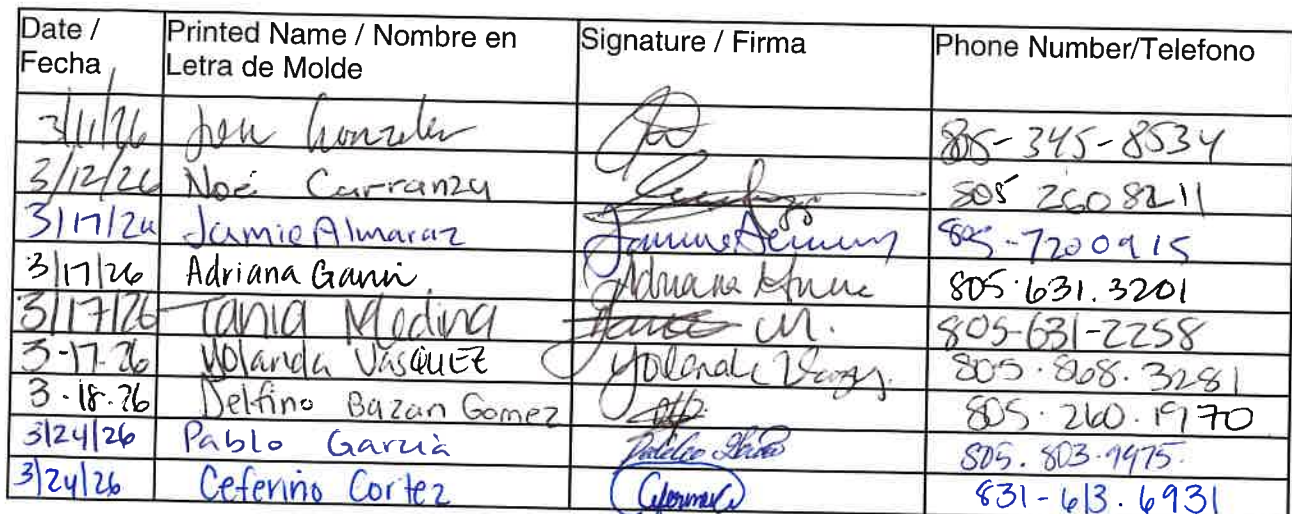 Date / Fecha Printed Name / Nombre en Letra de Molde Signature / Firma Phone Number/Telefono
3/11/26 Gonzalez 805-345-8534
3/12/26 Noé Carranza 805 260 8211
3/17/26 Jamie Almaraz 805-7200915
3/17/26 Adriana 805.631.3201
3/17/26 Tania Medina M. 805-631-2258
3-17-26 Yolanda VasQUEZ Yolanda 805.868.3281
3-18-26 Delfino Bazan Gomez 805.260.1970
3/24/26 Pablo Garcia 805.803.9975.
3/24/26 Ceferino Cortez 831-613.6931